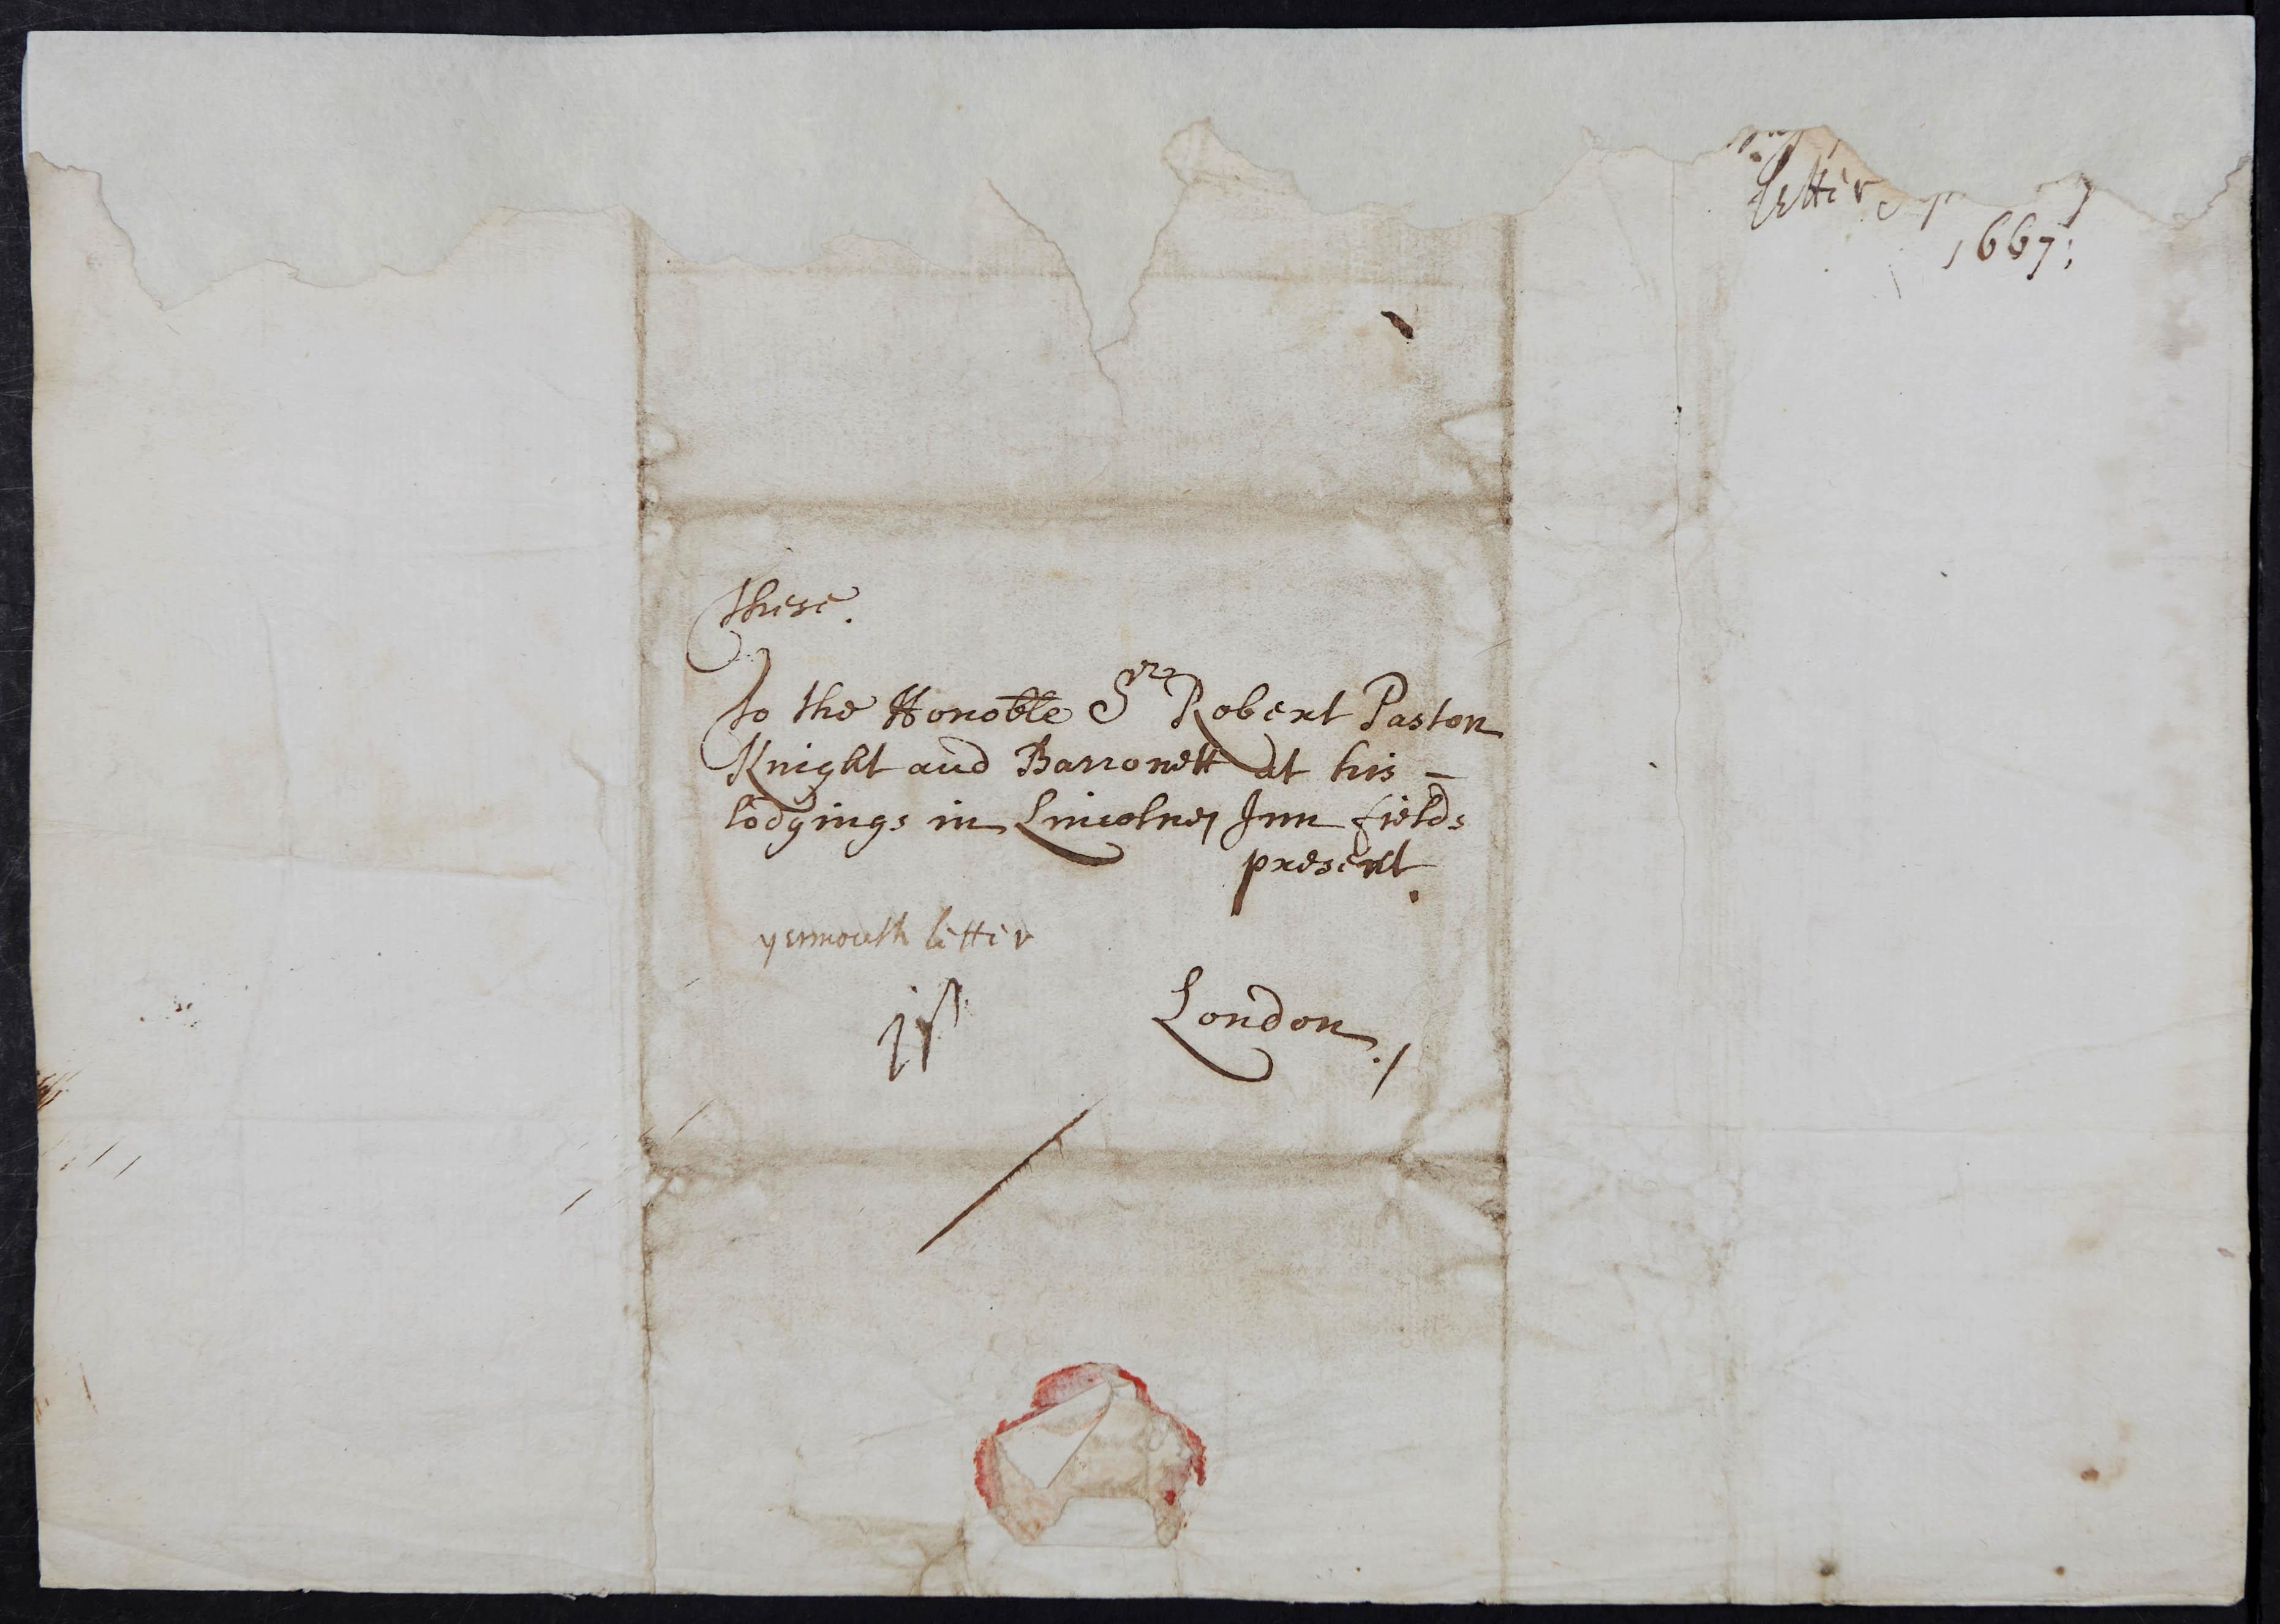 letter
1667;
These.
To the Honoble Sr Robert Paston
Knight and Barronett at his –
lodgings in Lincolnes Inn fields
present.
yermouth letter
London./